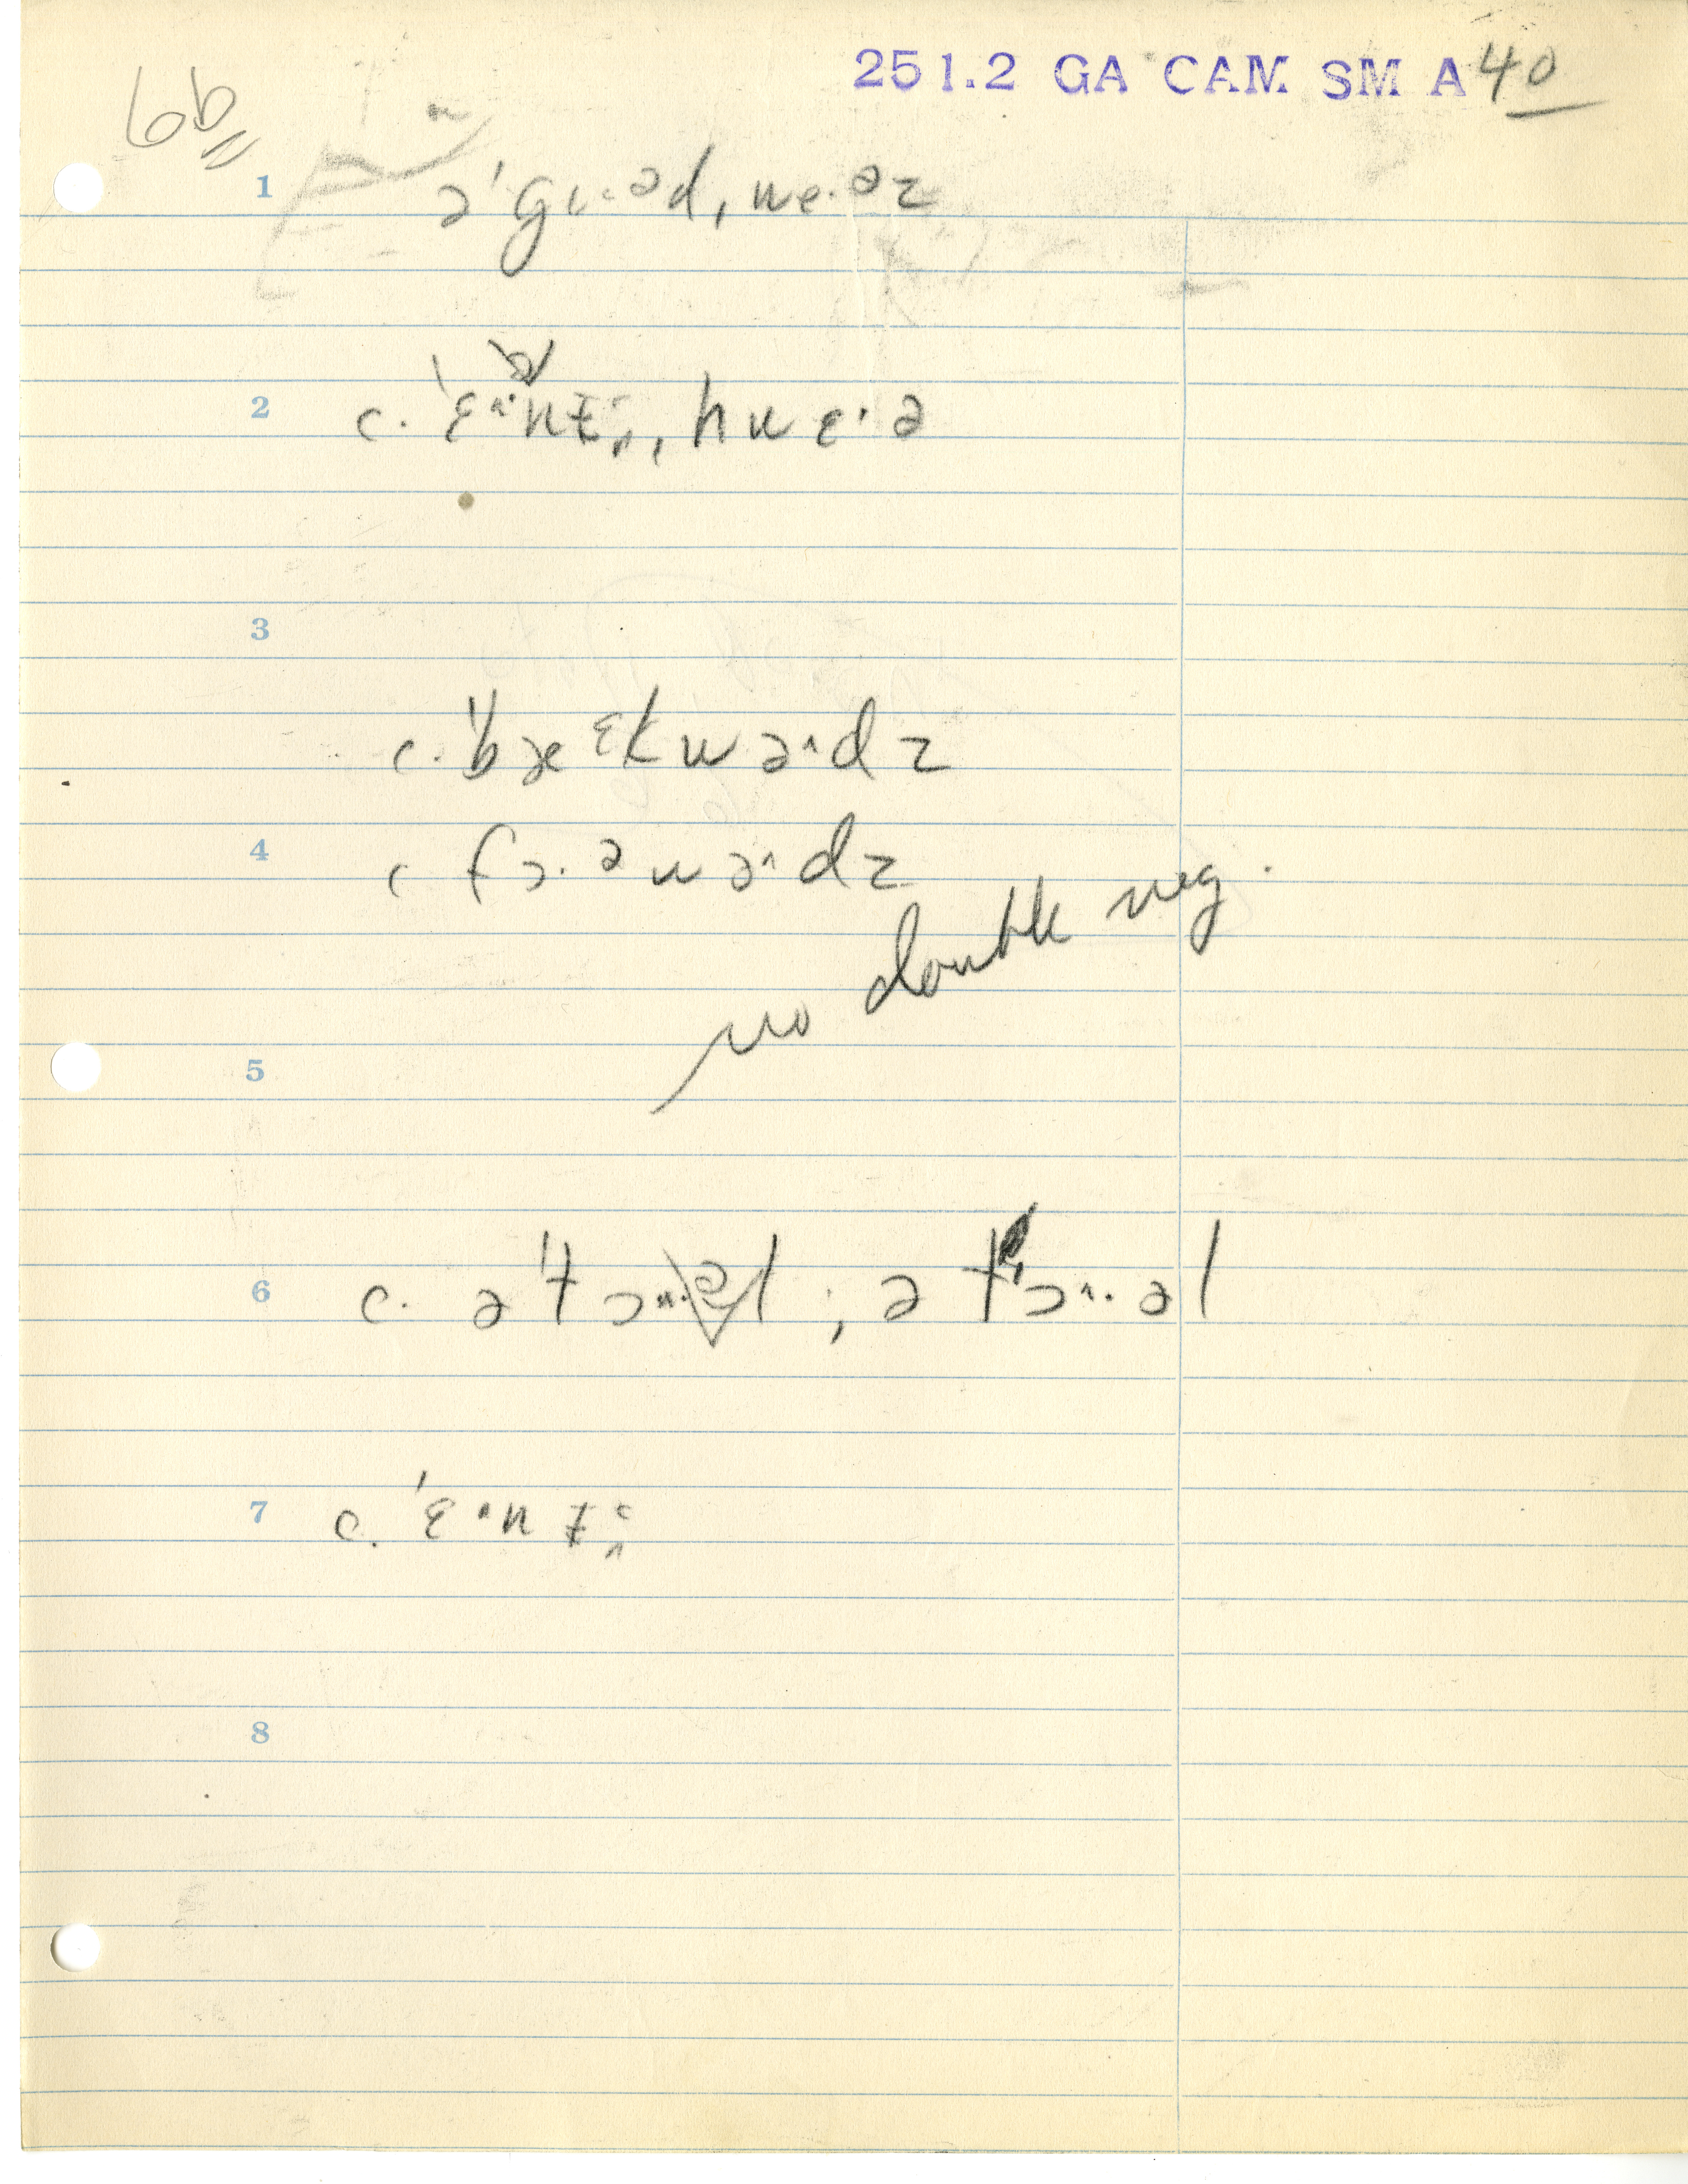 251.2 GA CAM SM A40
6b
1 ə'gɩ.ᵊd, we.ᵊz
2 c. 'ɛ^.nɪ̵, hwɛ.ə
3
c. 'bæᵋkwə^dz
4 c fɔ.ᵊwə^dz
no double neg.
5
6 c. ə'tɔ^.l ; ətɔ^.əl
7 c. 'ɛ^n
8